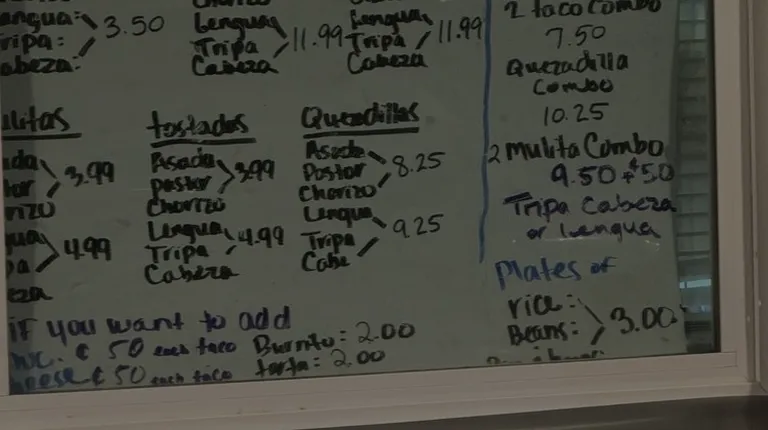 3.50
Lengua
Tripa
Cabeza
11.99
Lengua
Tripa
Cabeza
11.99
2 taco Combo
7.50
Quezadilla
Combo
10.25
2 Mulita Combo
9.50 + $.50
Tripa Cabeza
or Lengua
Plates of
rice:
Beans:
3.00
3.99
4.99
tostadas
Asada
pastor
Chorizo
3.99
Lengua
Tripa
Cabeza
4.99
Quezadillas
Asada
Pastor
Chorizo
8.25
Lengua
Tripa
Cabe
9.25
if you want to add
¢ 50 each taco
¢ 50 each taco
Burrito: 2.00
torta: 2.00